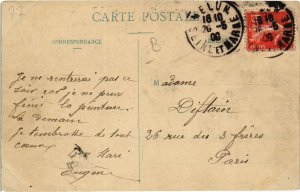 77
CARTE POSTALE
CORRESPONDANCE
B
MELUN
18 10
26 -6
09
SEINE ET MARNE
Je ne rentrerai pas ce
soir car je ne peux
finir la peinture
demain
Je t'embrasse de tout
cœur
Ton Mari
Eugène
Madame
Distain
26 rue des 3 frères
Paris